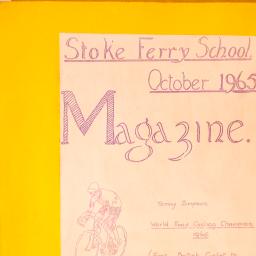 Stoke Ferry School.
October 1965
Magazine.
Tommy Simpson
World Road Cycling Champion
1965
(First British Cyclist to